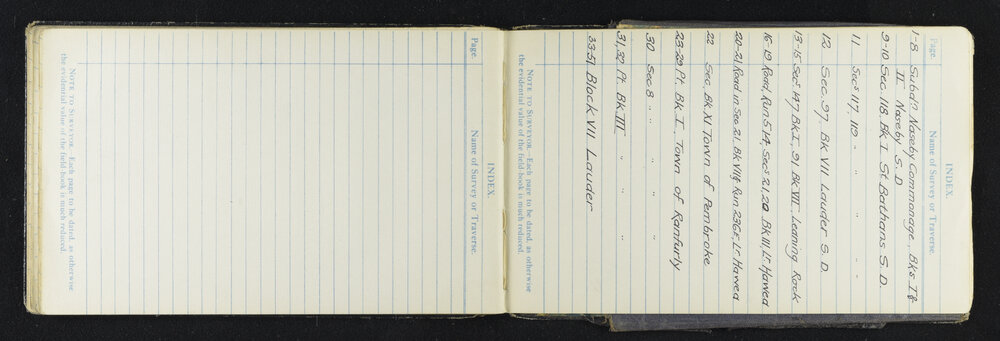 INDEX.
Page. Name of Survey or Traverse.
NOTE TO SURVEYOR.—Each page to be dated, as otherwise
the evidential value of the field-book is much reduced.
INDEX.
Page. Name of Survey or Traverse.
1-8 Subdn Naseby Commonage, Bks I &
II Naseby S.D
9-10 Sec. 118, Bk I St Bathans S.D.
11 Secs 117, 119 " " " "
12 Sec. 97, Bk VII Lauder S.D.
13-15 Secs 147 Bk I, 91 Bk VIII Leaning Rock
16-19 Road, Run 514, Secs 21.20 Bk III, Lr Hawea
20-21 Road in Sec 21. Bk VIII & Run 236F, Lr Hawea
22 Sec. Bk XI Town of Pembroke
23-29 Pt. Bk I Town of Ranfurly
30 Sec 8 " " " "
31,32 Pt. Bk III " " "
33-51 Block VII Lauder
NOTE TO SURVEYOR.—Each page to be dated, as otherwise
the evidential value of the field-book is much reduced.